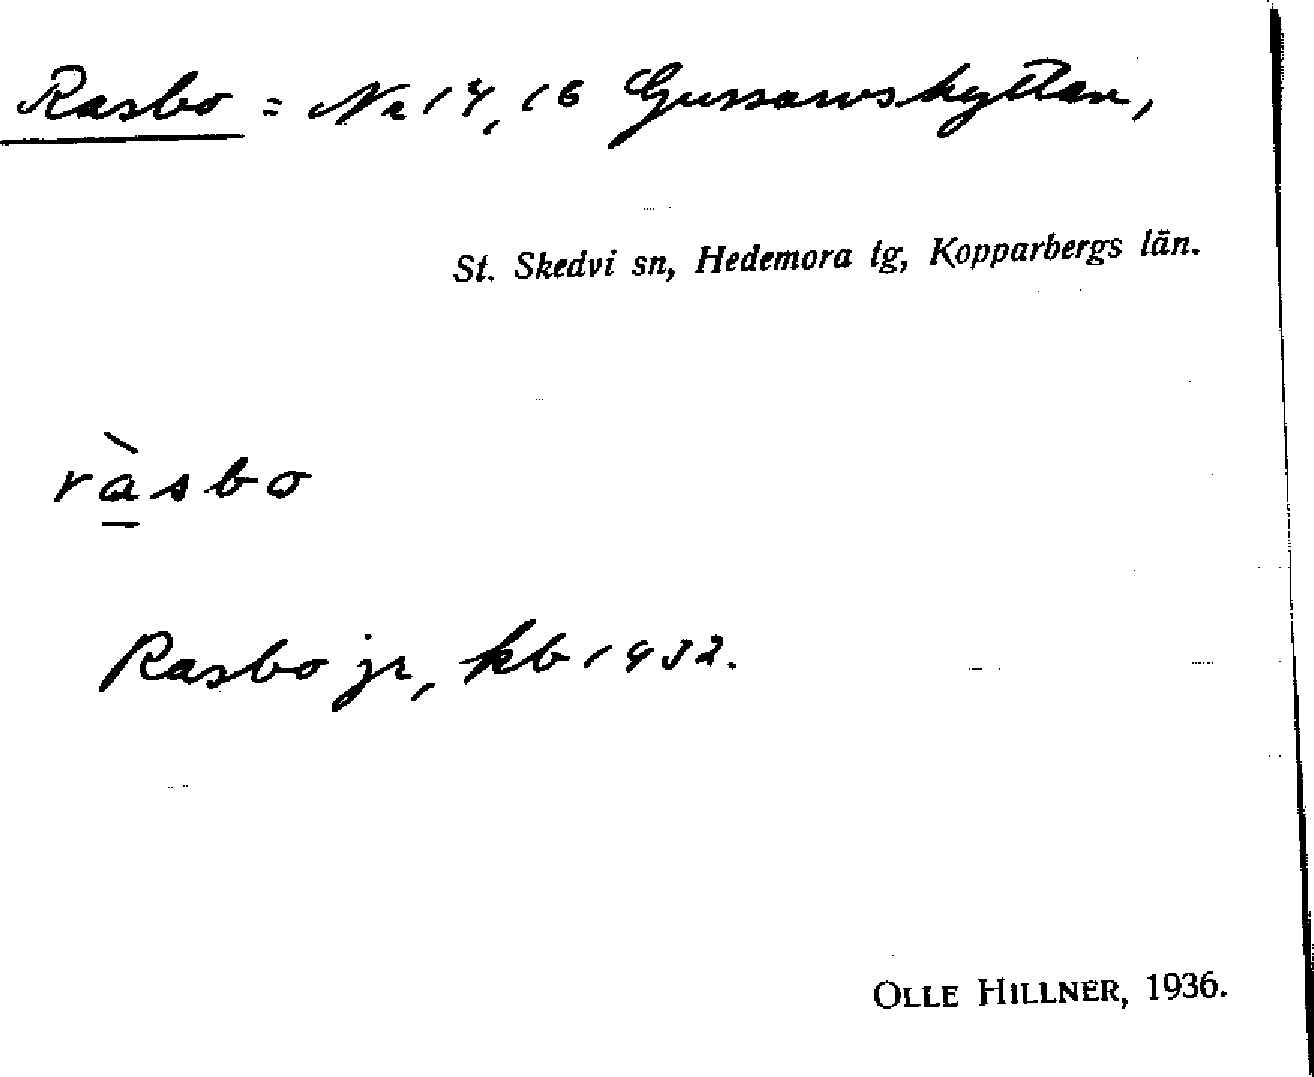 Rasbo = Nr 17, 16 Gussarvshyttan,
St. Skedvi sn, Hedemora tg, Kopparbergs län.
ràsbo
Rasbo jr, kb 1932.
OLLE HILLNER, 1936.